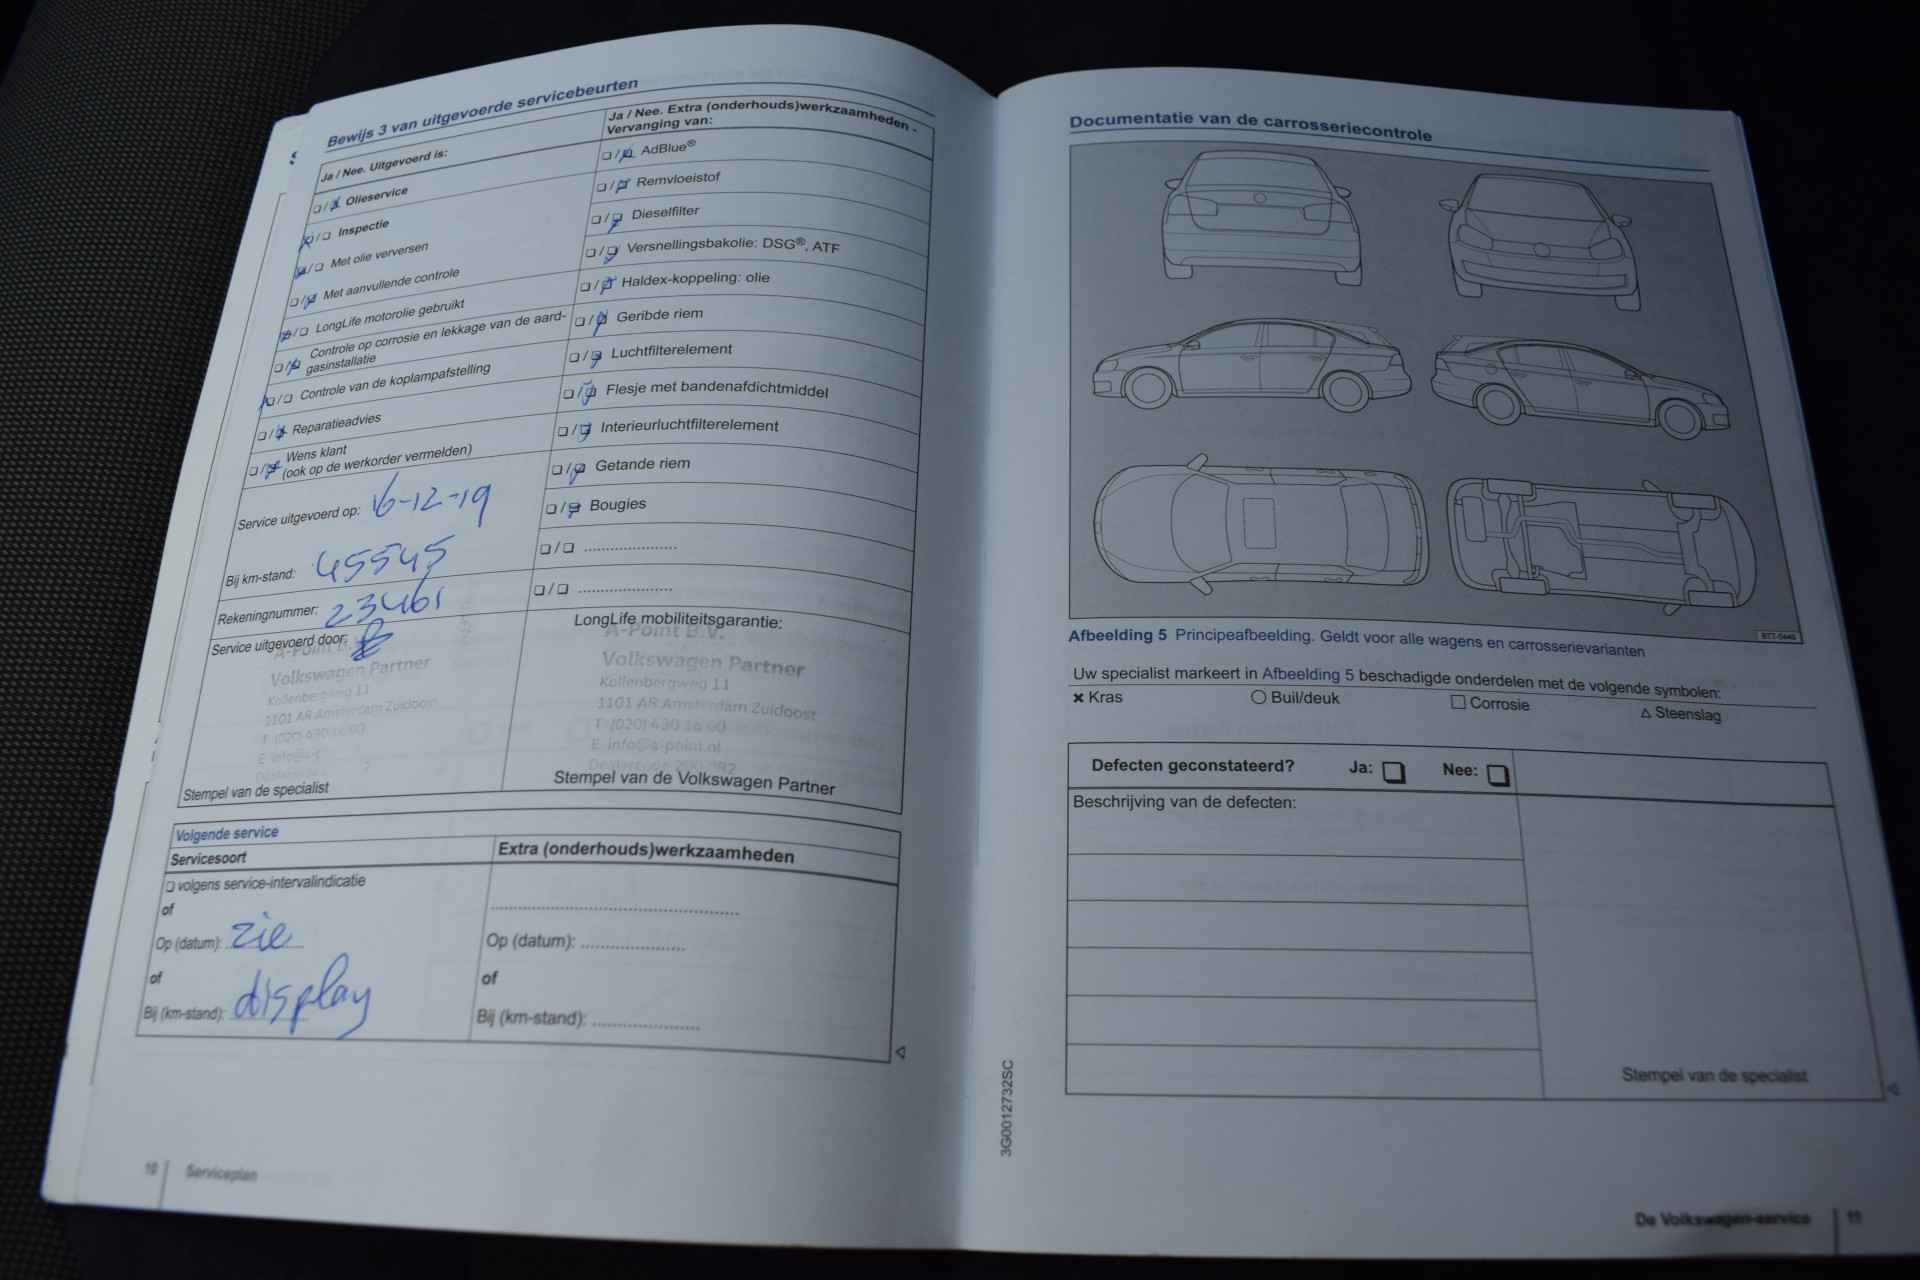 Bewijs 3 van uitgevoerde servicebeurten
Ja / Nee. Uitgevoerd is:
❏/❏ Olieservice
❏/❏ Inspectie
❏/❏ Met olie verversen
❏/❏ Met aanvullende controle
❏/❏ LongLife motorolie gebruikt
❏/❏ Controle op corrosie en lekkage van de aard-
gasinstallatie
❏/❏ Controle van de koplampafstelling
❏/❏ Reparatieadvies
❏/❏ Wens klant
(ook op de werkorder vermelden)
Service uitgevoerd op: 16-12-19
Bij km-stand: 45545
Rekeningnummer: 23461
Service uitgevoerd door:
A-Point B.V.
Volkswagen Partner
Kollenbergweg 11
1101 AR Amsterdam Zuidoost
T (020) 430 16 00
Stempel van de specialist
Ja / Nee. Extra (onderhouds)werkzaamheden -
Vervanging van:
❏/❏ AdBlue®
❏/❏ Remvloeistof
❏/❏ Dieselfilter
❏/❏ Versnellingsbakolie: DSG®, ATF
❏/❏ Haldex-koppeling: olie
❏/❏ Geribde riem
❏/❏ Luchtfilterelement
❏/❏ Flesje met bandenafdichtmiddel
❏/❏ Interieurluchtfilterelement
❏/❏ Getande riem
❏/❏ Bougies
❏/❏ .....................
❏/❏ .....................
LongLife mobiliteitsgarantie:
A-Point B.V.
Volkswagen Partner
Kollenbergweg 11
1101 AR Amsterdam Zuidoost
T (020) 430 16 00
E info@a-point.nl
Stempel van de Volkswagen Partner
Volgende service
Servicesoort
❏ volgens service-intervalindicatie
of
Op (datum): zie
of
Bij (km-stand): display
Extra (onderhouds)werkzaamheden
Op (datum): .....................
of
Bij (km-stand): .....................
10 Serviceplan
Documentatie van de carrosseriecontrole
Afbeelding 5 Principeafbeelding. Geldt voor alle wagens en carrosserievarianten
Uw specialist markeert in Afbeelding 5 beschadigde onderdelen met de volgende symbolen:
✖ Kras ○ Buil/deuk □ Corrosie △ Steenslag
Defecten geconstateerd? Ja: ❏ Nee: ❏
Beschrijving van de defecten:
Stempel van de specialist
3G0012732SC
De Volkswagen-service 11